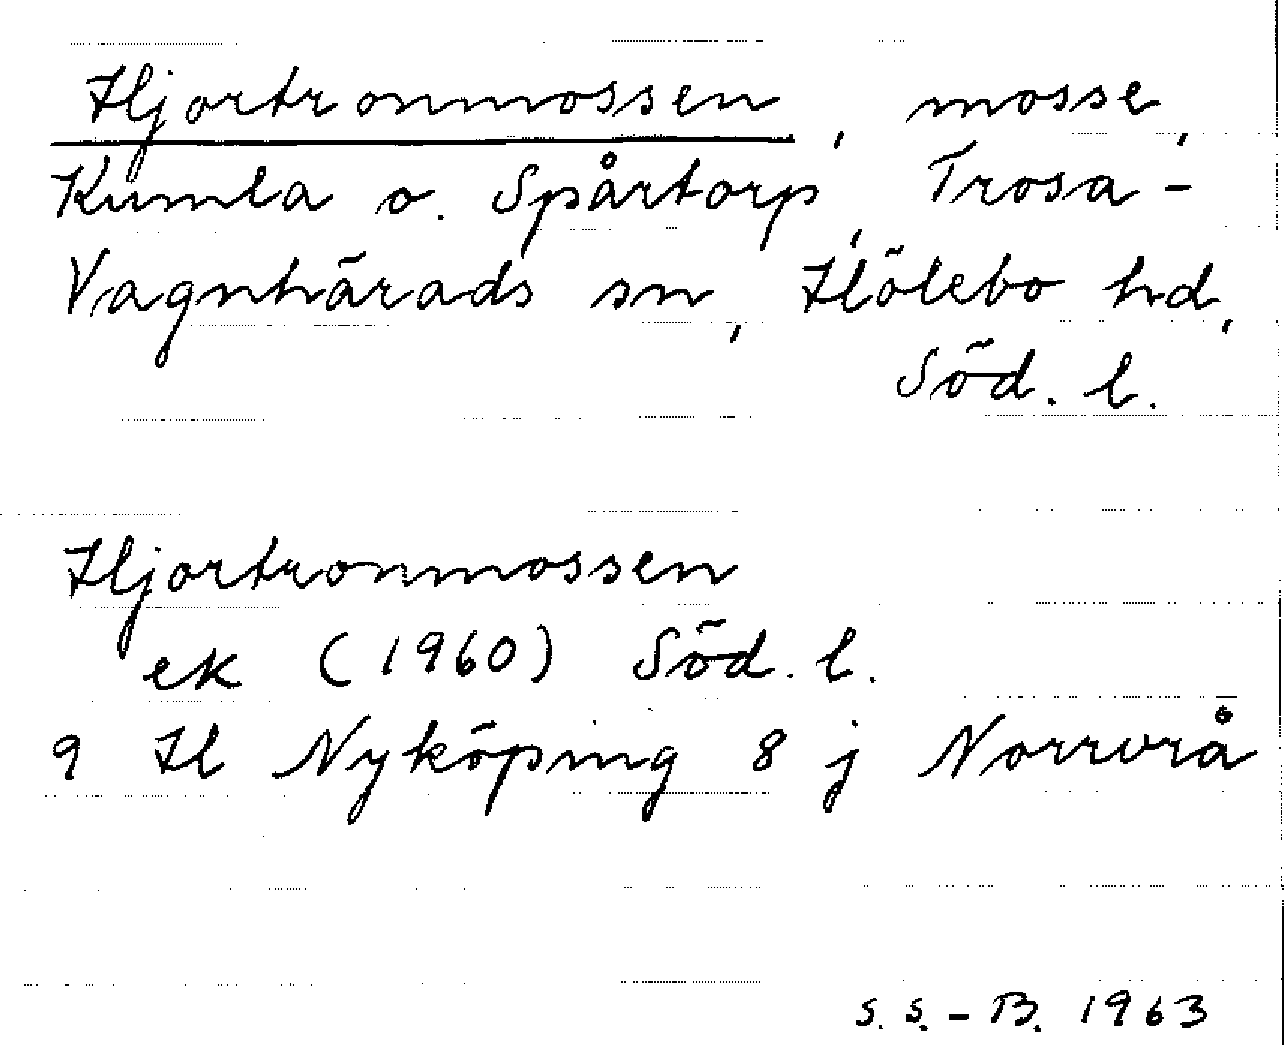 Hjortronmossen, mosse,
Kumla o. Spårtorp, Trosa-
Vagnhärads sn, Hölebo hd,
Söd. l.
Hjortronmossen
ek (1960) Söd. l.
9 H Nyköping 8 j Norrvrå
S. S.-B. 1963